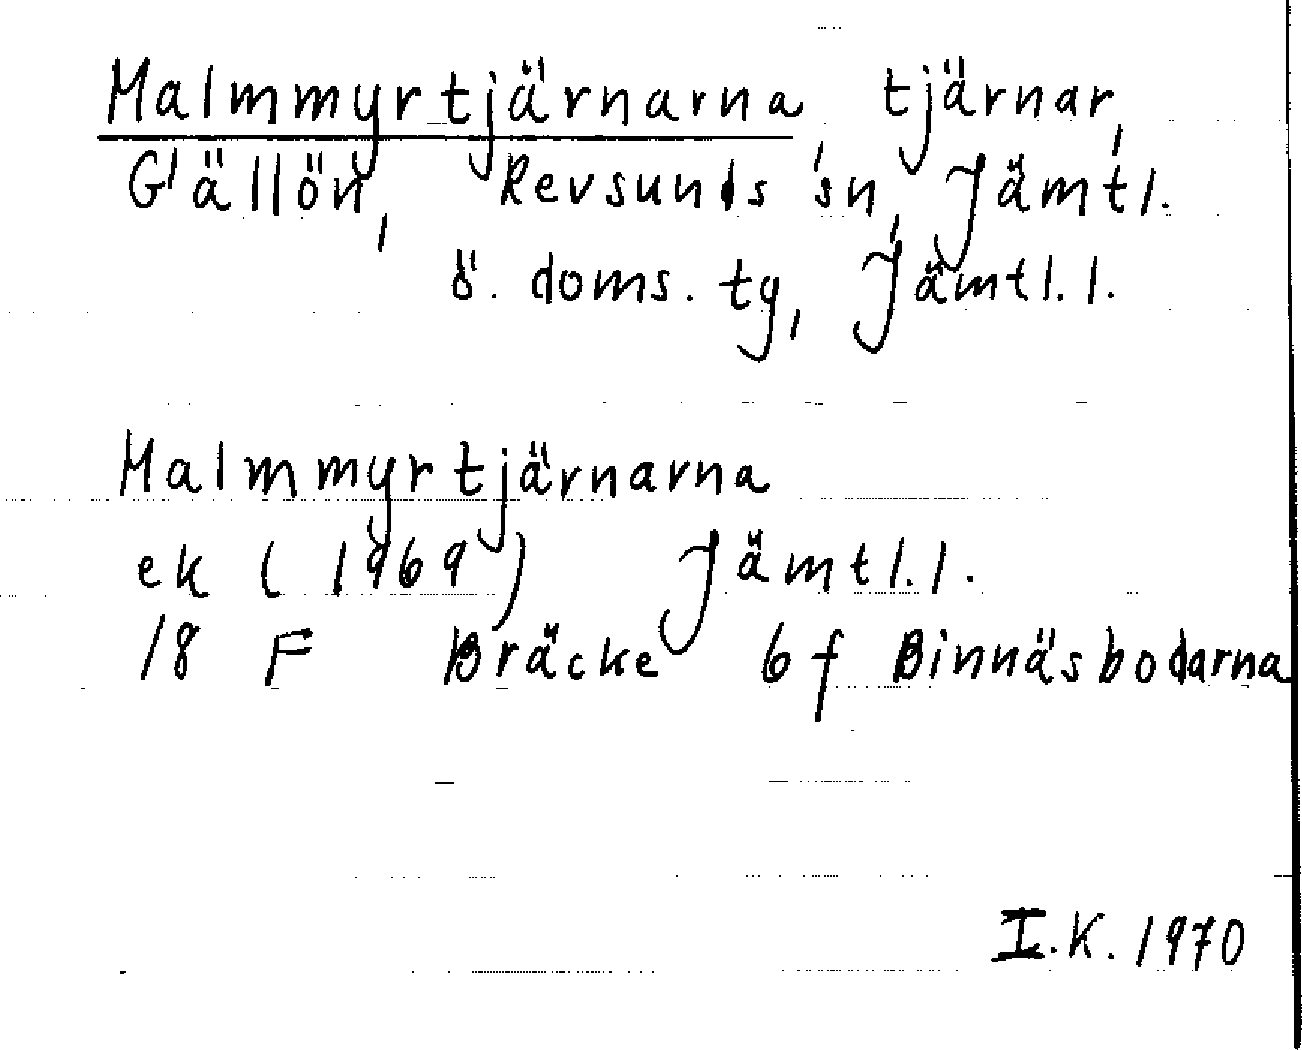 Malmmyrtjärnarna, tjärnar,
Gällön, Revsunds sn, Jämtl.
ö. doms. tg, Jämtl. l.
Malmmyrtjärnarna
ek (1969) Jämtl. l.
18 F Bräcke 6 f Binnäsbodarna
I.K. 1970